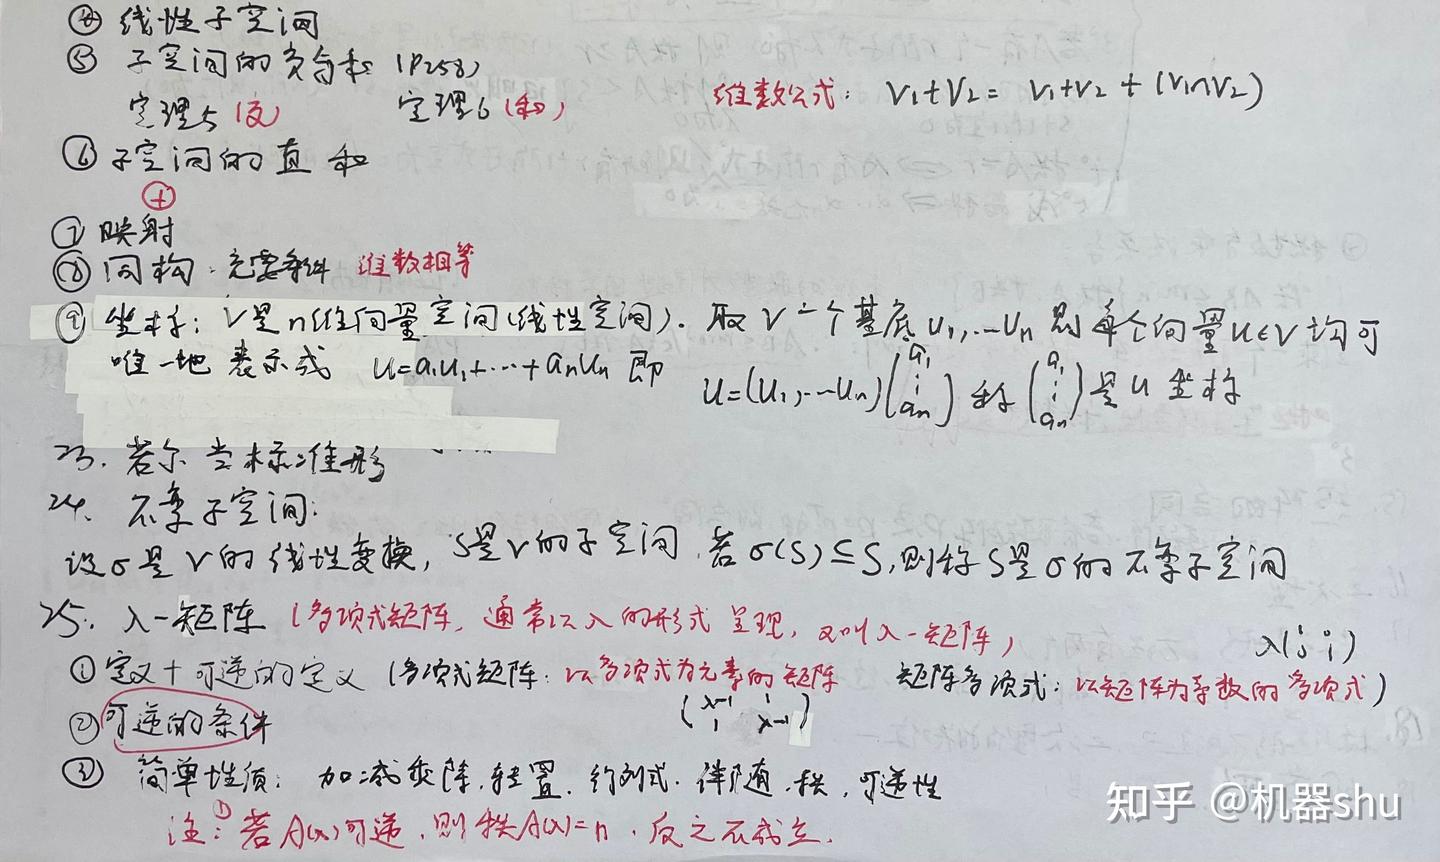 ④ 线性子空间
⑤ 子空间的交与和 (P258)
定理5(交) 定理6(和) 维数公式: V₁+V₂= V₁+V₂ + (V₁∩V₂)
⑥ 子空间的直和
⊕
⑦ 映射
⑧ 同构·充要条件 维数相等
⑨ 坐标: V是n维向量空间(线性空间). 取V一个基底 u₁,…uₙ 则每个向量u∈V均可
唯一地表示成 u=a₁u₁+…+aₙuₙ 即 u=(u₁,…uₙ)(a₁ ⋮ aₙ) 称 (a₁ ⋮ aₙ) 是u坐标
23. 若尔当标准形
24. 不变子空间:
设σ是V的线性变换, S是V的子空间, 若σ(S)⊆S, 则称S是σ的不变子空间
25. λ-矩阵 (多项式矩阵, 通常以λ的形式呈现, 又叫λ-矩阵)
① 定义+可逆的定义 (多项式矩阵: 以多项式为元素的矩阵 矩阵多项式: 以矩阵为系数的多项式)
② 可逆的条件
③ 简单性质: 加减乘除, 转置, 行列式. 伴随. 秩, 可逆性
注: ① 若A(λ)可逆, 则秩A(λ)=n. 反之不成立.
知乎 @机器shu